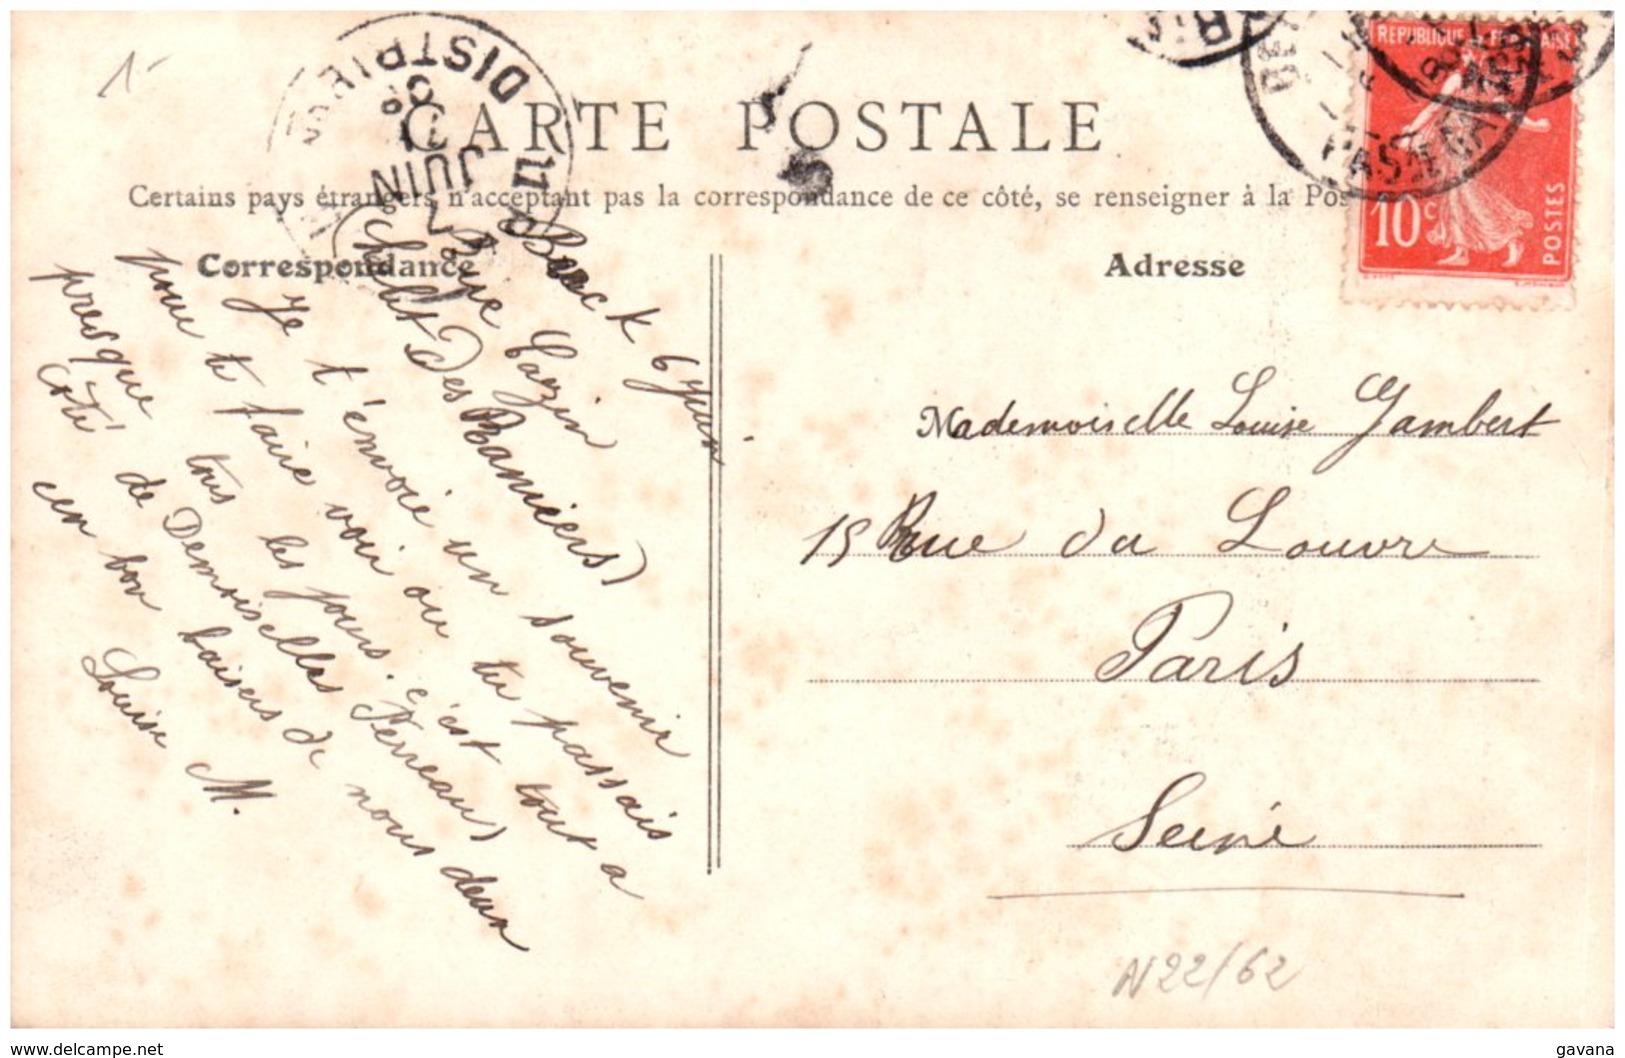 1-
DISTRIB
10
7 JUIN
CARTE POSTALE
Certains pays étrangers n'acceptant pas la correspondance de ce côté, se renseigner à la Pos
Correspondance
Adresse
REPUBLIQUE FRANÇAISE
10c
POSTES
PAS DE CALAIS
Berck 6 Juin
Rue Cazin
(Chalet Des Ramiers)
Je t'envoie un souvenir
pour te faire voir ou tu passais
presque tous les jours. c'est tout a
coté de Demoiselles Perreau)
un bon baisers de nous deux
Louise M.
Mademoiselle Louise Jambert
15 Rue du Louvre
Paris
Seine
N22/62
www.delcampe.net
gavana